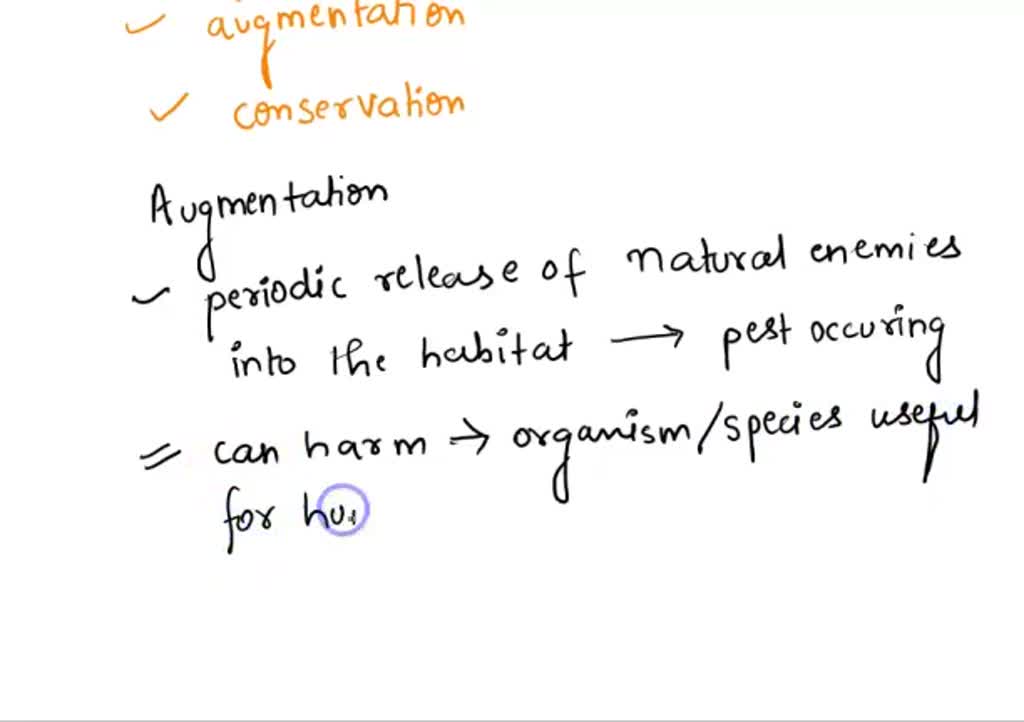 ✓ augmentation
✓ conservation
Augmentation
✓ periodic release of natural enemies
into the habitat → pest occuring
= can harm → organism/species useful
for hu